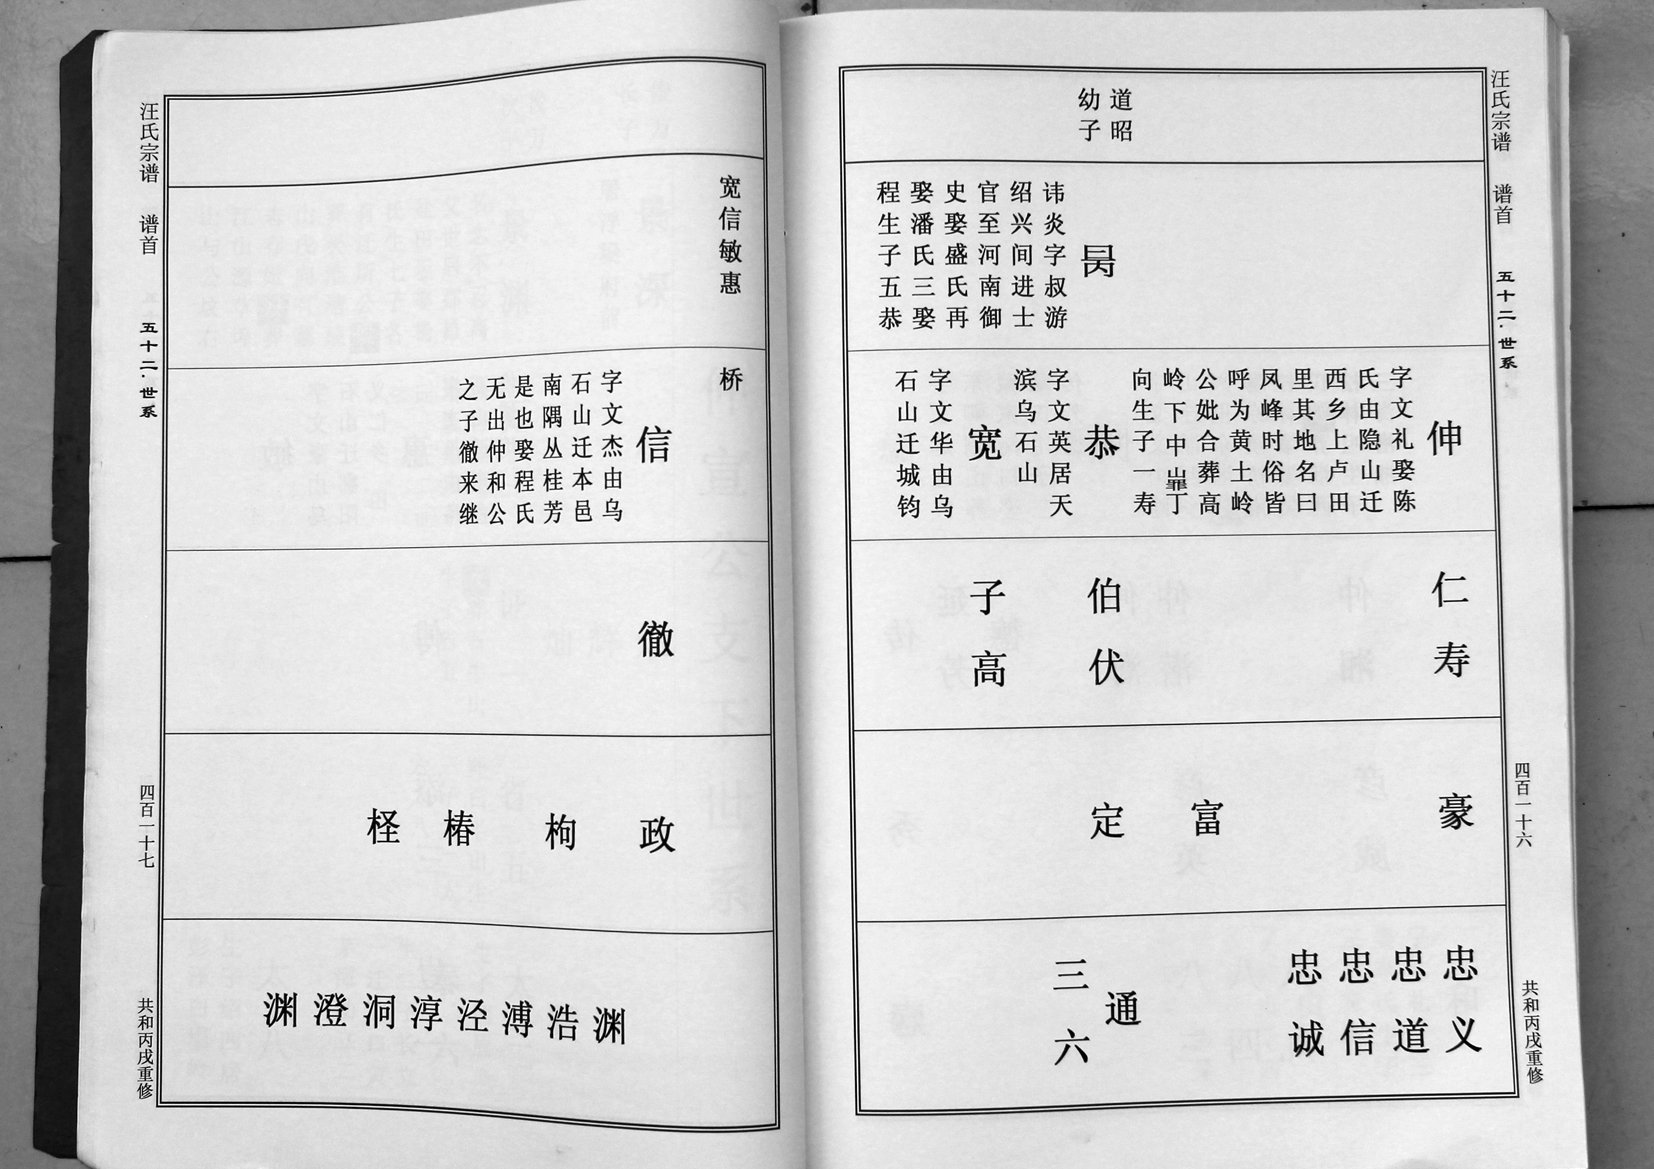 汪氏宗谱
谱首
五十二·世系
四百一十六
共和丙戌重修
道昭
幼子
昺
讳炎字叔游
绍兴间进士
官至河南御
史娶盛氏再
娶潘氏三娶
程生子五恭
伸
字文礼娶陈
氏由隐山迁
西乡上卢田
里其地名曰
凤峰时俗皆
呼为黄土岭
公妣合葬高
岭下中
丁
向生子一寿
恭
字文英居天
滨乌石山
宽
字文华由乌
石山迁城钧
仁寿
伯伏
子高
豪
富
定
忠义
忠道
忠信
忠诚
通
三六
宽信敏惠
桥
信
字文杰由乌
石山迁本邑
南隅丛桂芳
是也娶程氏
无出仲和公
之子徹来继
徹
政
枸
椿
柽
渊
浩
溥
泾
淳
洞
澄
渊
汪氏宗谱
谱首
五十二·世系
四百一十七
共和丙戌重修